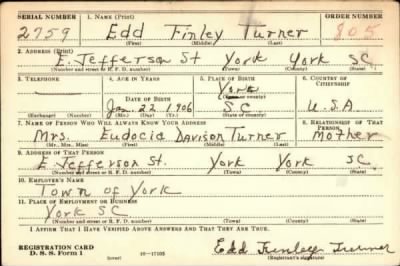 SERIAL NUMBER 1. NAME (Print) ORDER NUMBER
2759 Edd Finley Turner 805
(First) (Middle) (Last)
2. ADDRESS (Print)
E. Jefferson St York York SC
(Number and street or R. F. D. number) (Town) (County) (State)
3. TELEPHONE 4. AGE IN YEARS 5. PLACE OF BIRTH 6. COUNTRY OF CITIZENSHIP
York
DATE OF BIRTH (Town or county)
Jan. 22 1906 SC U.S.A
(Exchange) (Number) (Mo.) (Day) (Yr.) (State or country)
7. NAME OF PERSON WHO WILL ALWAYS KNOW YOUR ADDRESS 8. RELATIONSHIP OF THAT PERSON
Mrs. Eudocia Davison Turner Mother
(Mr., Mrs., Miss) (First) (Middle) (Last)
9. ADDRESS OF THAT PERSON
E Jefferson St. York York SC
(Number and street or R. F. D. number) (Town) (County) (State)
10. EMPLOYER'S NAME
Town of York
11. PLACE OF EMPLOYMENT OR BUSINESS
York SC
(Number and street or R. F. D. number) (Town) (County) (State)
I AFFIRM THAT I HAVE VERIFIED ABOVE ANSWERS AND THAT THEY ARE TRUE.
REGISTRATION CARD Edd Finley Turner
D. S. S. Form 1 (over) 16-17105 (Registrant's signature)